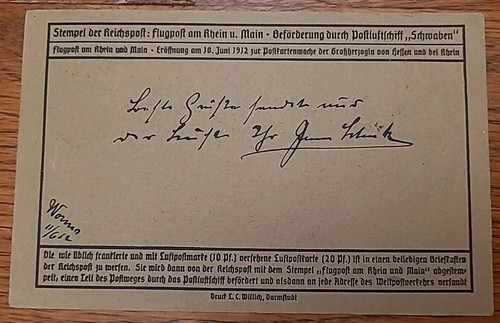 Stempel der Reichspost: Flugpost am Rhein u. Main - Beförderung durch Postluftschiff „Schwaben“
Flugpost am Rhein und Main - Eröffnung am 10. Juni 1912 zur Postkartenwoche der Großherzogin von Hessen und bei Rhein
Beste Grüße sendet
der Ihr
Worms
11/6 12
Die wie üblich frankierte und mit Luftpostmarke (10 Pf.) versehene Luftpostkarte (20 Pf.) ist in einen beliebigen Briefkasten
der Reichspost zu werfen. Sie wird dann von der Reichspost mit dem Stempel „Flugpost am Rhein und Main“ abgestem-
pelt, einen Teil des Postweges durch das Postluftschiff befördert und alsdann an jede Adresse des Weltpostverkehrs versandt
Druck L. C. Wittich, Darmstadt